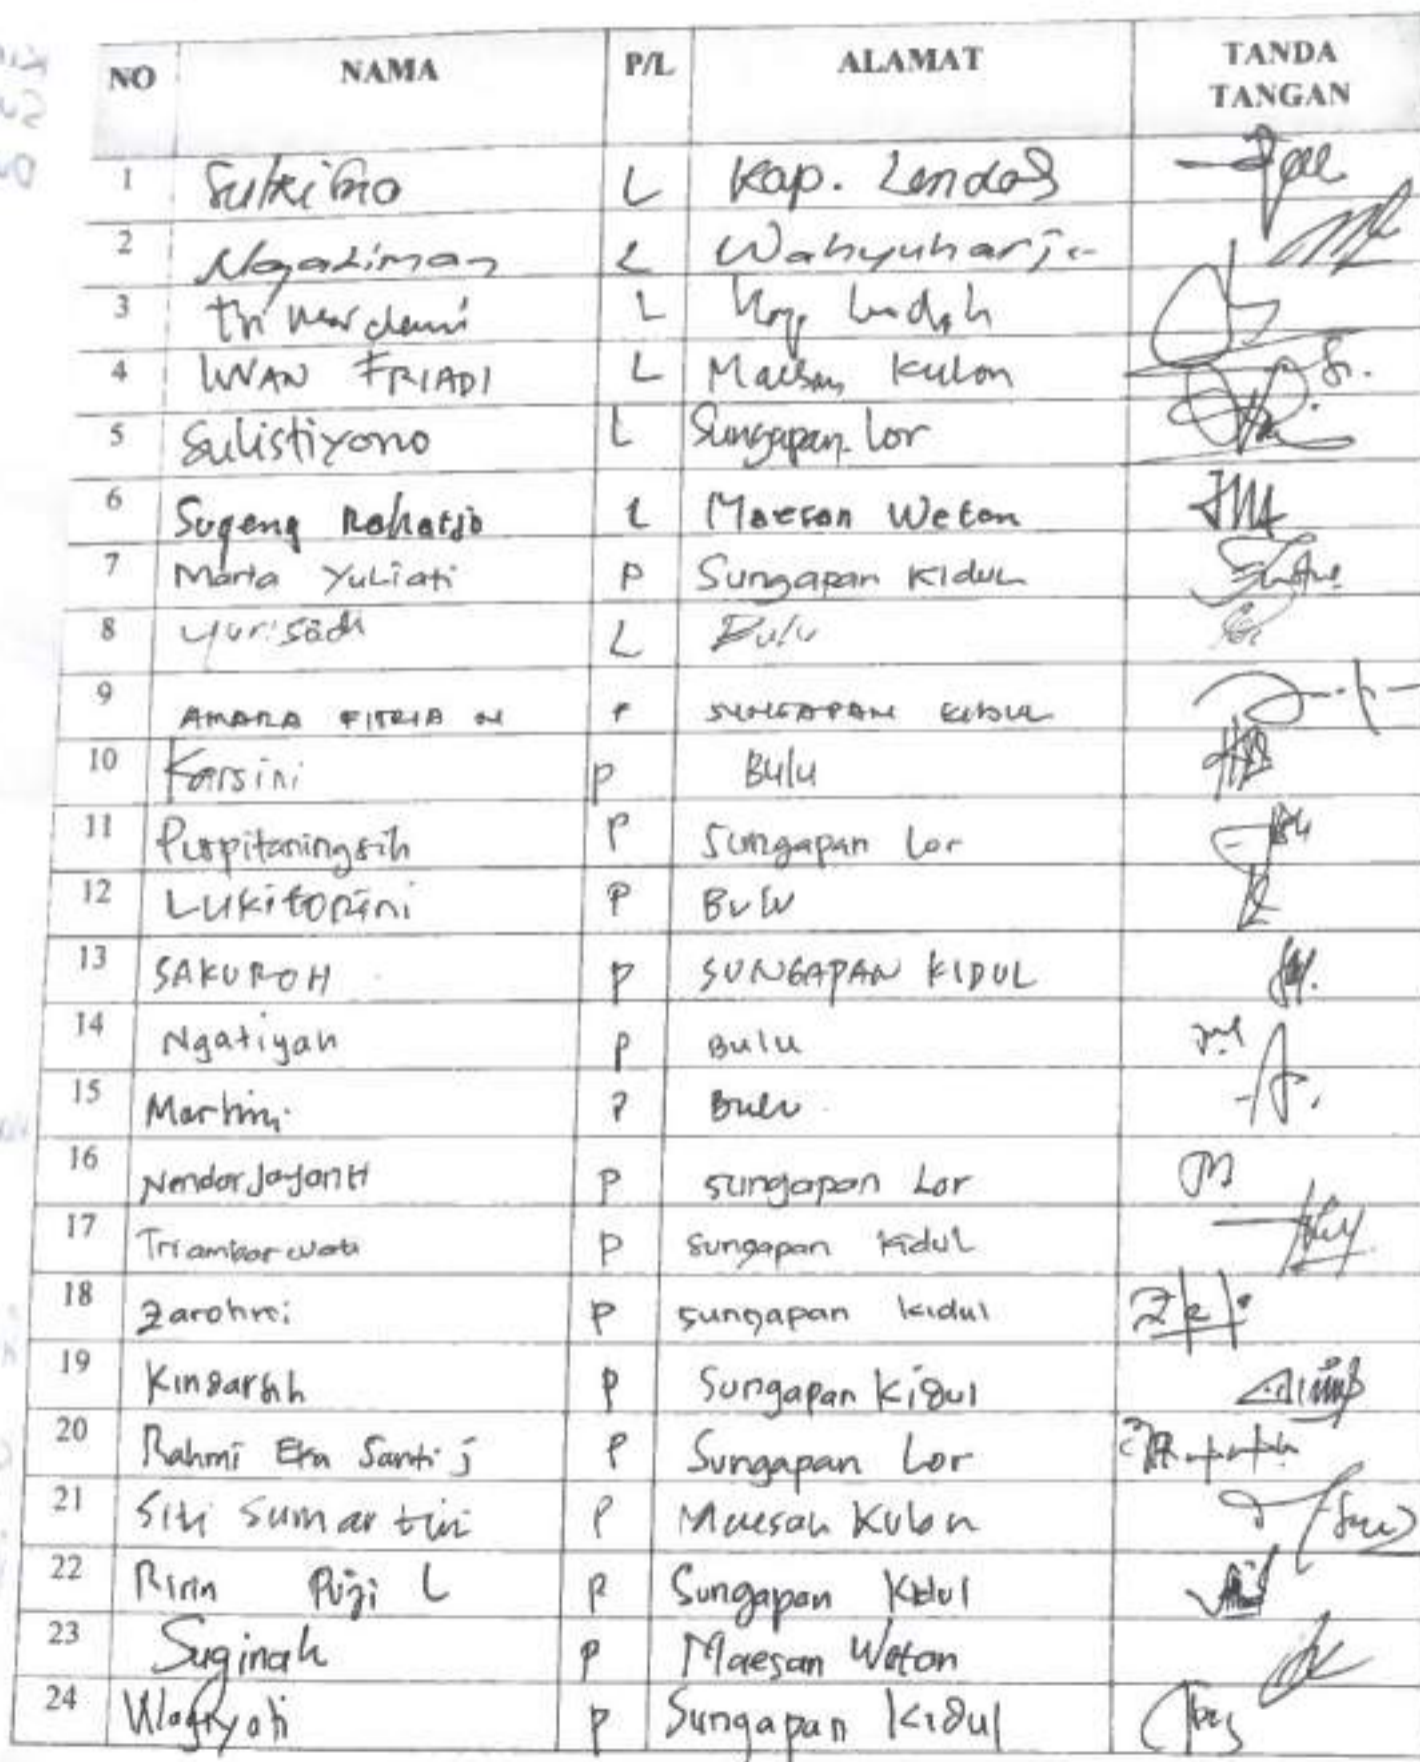 NO NAMA P/L ALAMAT TANDA TANGAN
1 Sukirno L Kap. Lendah
2 Ngatiman L Wahyuharjo
3 Tri L Kap. Lendah
4 IWAN FRIADI L Maesan Kulon
5 Sulistiyono L Sungapan Lor
6 Sugeng Raharjo L Maesan Wetan
7 Maria Yuliati P Sungapan Kidul
8 L Bulu
9 AMARA FITRIA N P SUNGAPAN KIDUL
10 Karsini P Bulu
11 Puspitaningsih P Sungapan Lor
12 Lukitorini P Bulu
13 SAKUROH P SUNGAPAN KIDUL
14 Ngatiyah P Bulu
15 Martini P Bulu
16 P Sungapan Lor
17 Triambarwati P Sungapan Kidul
18 P Sungapan Kidul
19 P Sungapan Kidul
20 Rahmi Eka Santi j P Sungapan Lor
21 Siti Sumartini P Maesan Kulon
22 Ririn Puji L P Sungapan Kidul
23 Suginah P Maesan Wetan
24 P Sungapan Kidul